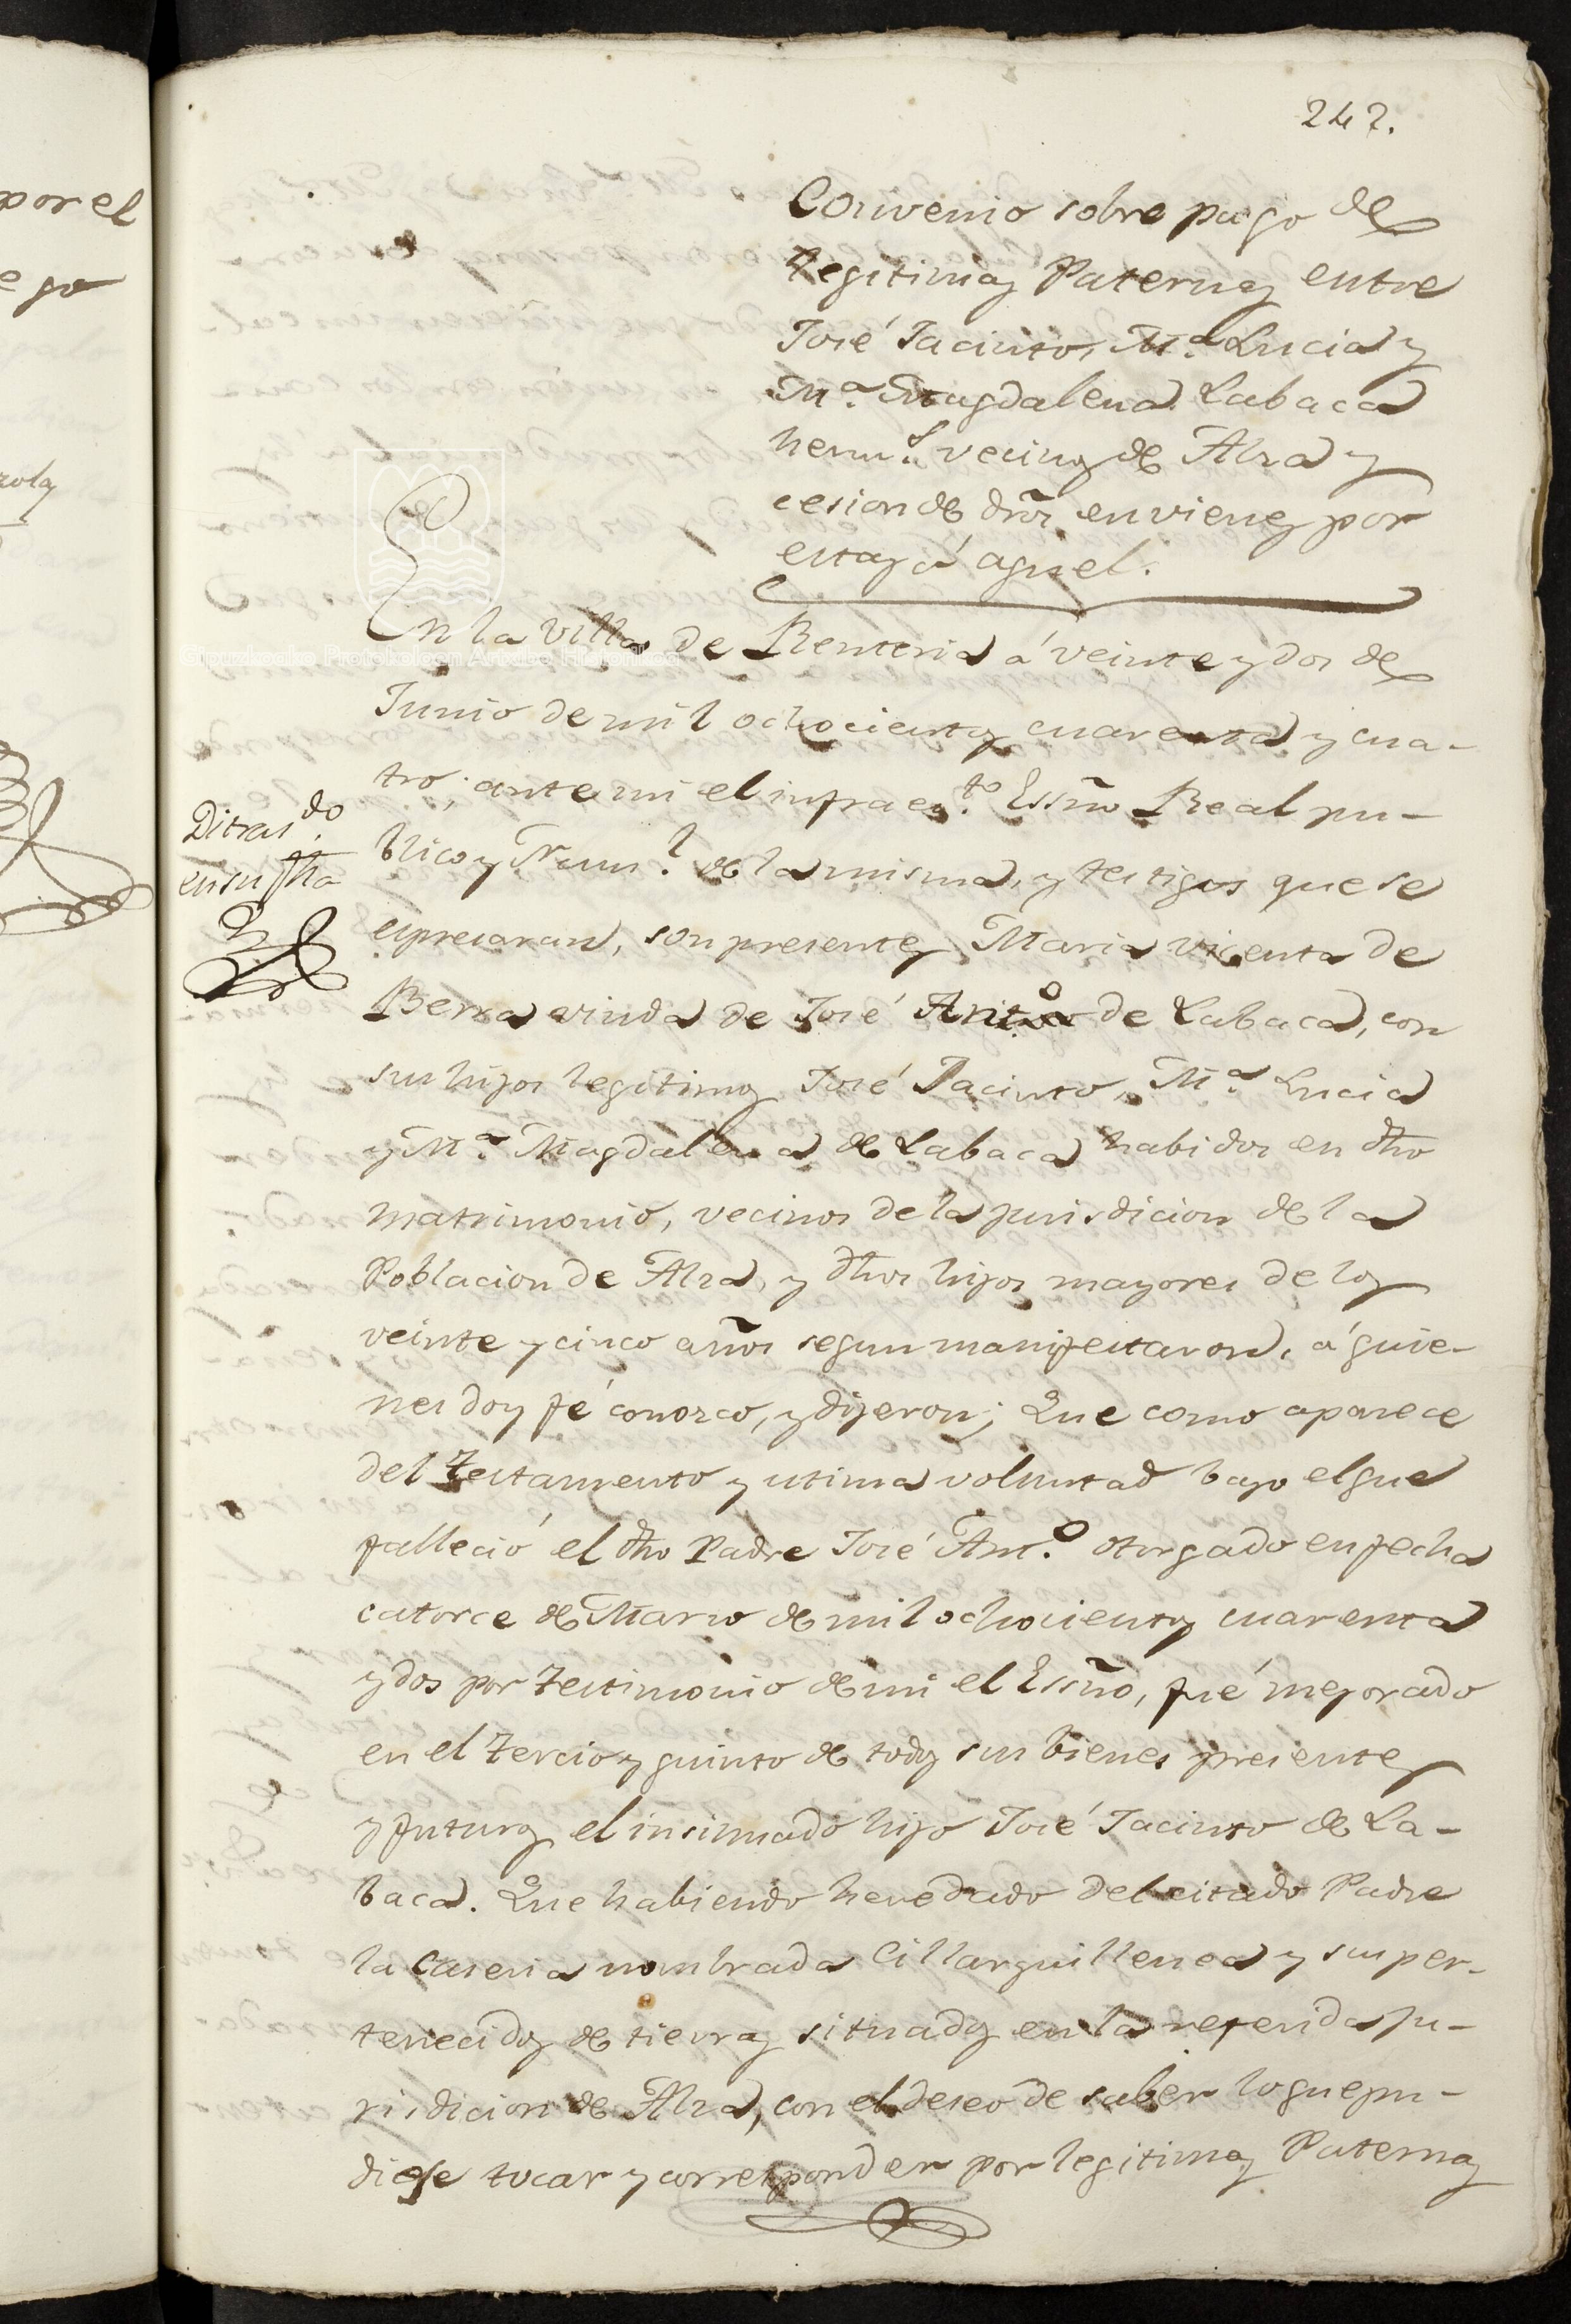 247.
Convenio sobre pago de
Legitimas Paternas entre
José Jacinto, M.ª Lucia y
M.ª Magdalena Labaca
herm.s vecinos de Alza y
cesion de dros. en vienes por
estas á aquel.
En la Villa de Renteria á veinte y dos de
Junio de mil ochocientos cuarenta y cua-
tro; ante mi el infraes.to Essño Real pu-
blico y Num.l de la misma, y testigos que se
espresaran, son presentes Maria Vicenta de
Berra viuda de José Antº de Labaca, con
sus hijos legitimos José Jacinto, M.ª Lucia
y M.ª Magdalena de Labaca habidos en dho
matrimonio, vecinos de la jurisdicion de la
Poblacion de Alza, y dhos hijos mayores de los
veinte y cinco años segun manifestaron, á quie-
nes doy fé conozco, y dijeron; Que como aparece
del Testamento y utima voluntad bajo el que
falleció el dho Padre José Ant.º otorgado en fecha
catorce de Marzo de mil ochocientos cuarenta
y dos por testimonio de mi el Essño, fué mejorado
en el tercio y quinto de todos sus bienes presentes
y futuros el insinuado hijo José Jacinto de La-
baca. Que habiendo heredado del citado Padre
la Caseria nombrada Cillarguillenea y sus per-
tenecidos de tierras situados en la referida ju-
risdicion de Alza, con el deseo de saber lo que pu-
diese tocar y corresponder por legitimas Paternas
Di tras.do
en su fha
por el
go
zolas
Gipuzkoako Protokoloen Artxibo Historikoa